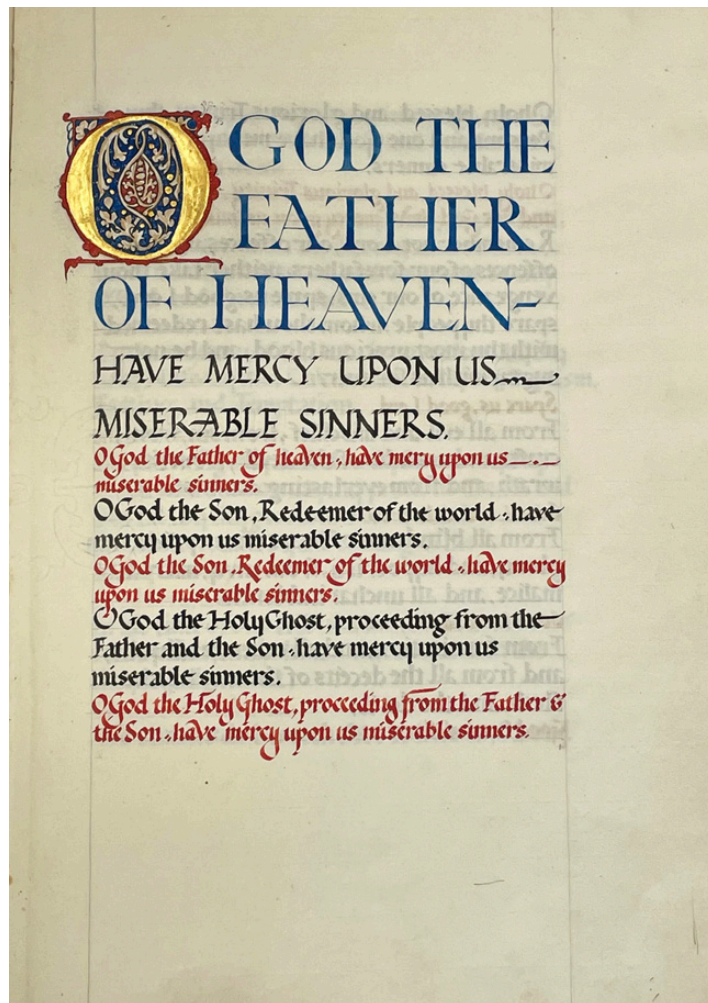 O GOD THE
FATHER
OF HEAVEN-
HAVE MERCY UPON US
MISERABLE SINNERS.
O God the Father of heaven, have mery upon us
miserable sinners.
O God the Son, Redeemer of the world, have
mercy upon us miserable sinners.
O God the Son, Redeemer of the world, have mercy
upon us miserable sinners.
O God the Holy Ghost, proceeding from the
Father and the Son, have mercy upon us
miserable sinners.
O God the Holy Ghost, proceeding from the Father &
the Son, have mercy upon us miserable sinners.